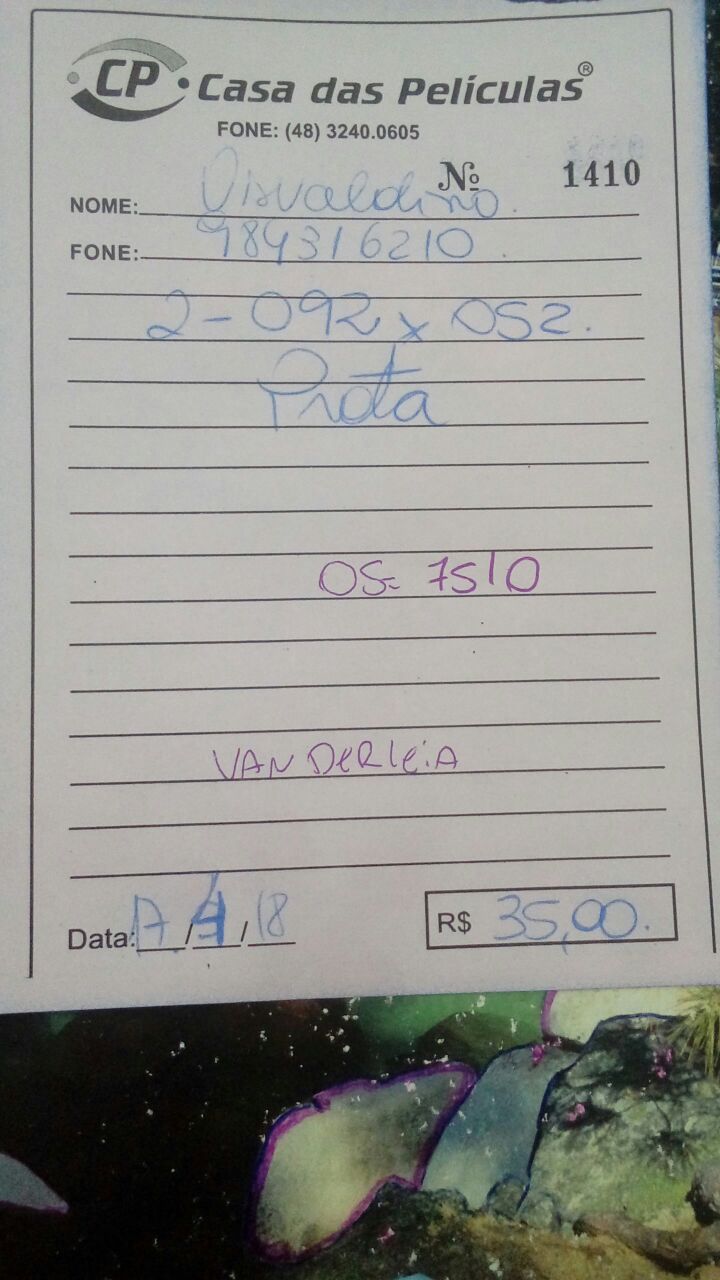 CP Casa das Películas®
FONE: (48) 3240.0605
Nº 1410
NOME: Osvaldino.
FONE: 984316210.
2-092 x 052.
Prata
OS- 7510
VANDERLEiA
Data: 17/4/18
R$ 35,00.